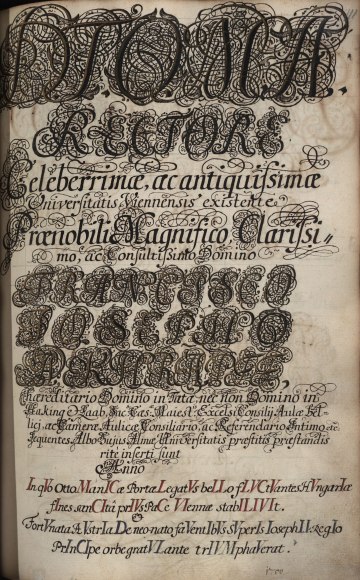 D.T.O.M.A.
RECTORE
Celeberrimæ, ac antiquissimæ
Universitatis Viennensis existente
Prænobili Magnifico Clarissi-
mo, ac Consultissimo Domino
FRANCISCO
IOSEPHO
hæreditario Domino in Tata, nec non Domino in
&
Aulæ Bel-
lici, ac Cameræ Aulicæ Consiliario, ac Referendario Intimo &c.
sequentes Albo hujus Almæ Universitatis præstitis præstandis
rite inserti sunt
Anno
In qVo OttoManICæ Portæ LegatVs beLLo fLVCtVantes HVngarIæ
fInes sanCItâ prIVs PaCe VIennæ stabILIVIt.
FortVnata AVstrIa De neo-nato faVentIbVs SVperIs Ioseph II. RegIo
PrInCIpe orbe gratVLante trIVMphaVerat.